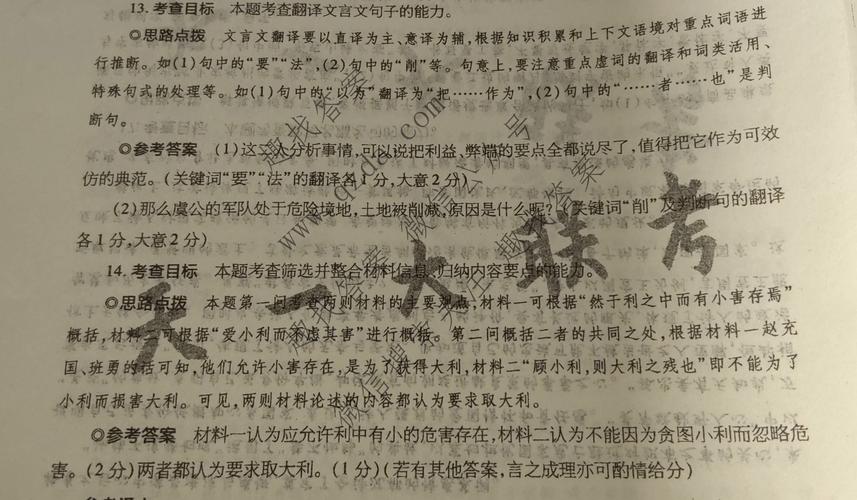 13. 考查目标 本题考查翻译文言文句子的能力。
◎思路点拨 文言文翻译要以直译为主、意译为辅,根据知识积累和上下文语境对重点词语进
行推断。如(1)句中的“要”“法”,(2)句中的“削”等。句意上,要注意重点虚词的翻译和词类活用、
特殊句式的处理等。如(1)句中的“以为”翻译为“把……作为”,(2)句中的“……者……也”是判
断句。
◎参考答案 (1)这二人分析事情,可以说把利益、弊端的要点全都说尽了,值得把它作为可效
仿的典范。(关键词“要”“法”的翻译各1分,大意2分)
(2)那么虞公的军队处于危险境地,土地被削减,原因是什么呢?(关键词“削”及判断句的翻译
各1分,大意2分)
14. 考查目标 本题考查筛选并整合材料信息、归纳内容要点的能力。
◎思路点拨 本题第一问考查两则材料的主要观点,材料一可根据“然于利之中而有小害存焉”
概括,材料二可根据“爱小利而不虑其害”进行概括。第二问概括二者的共同之处,根据材料一赵充
国、班勇的话可知,他们允许小害存在,是为了获得大利,材料二“顾小利,则大利之残也”即不能为了
小利而损害大利。可见,两则材料论述的内容都认为要求取大利。
◎参考答案 材料一认为应允许利中有小的危害存在,材料二认为不能因为贪图小利而忽略危
害。(2分)两者都认为要求取大利。(1分)(若有其他答案,言之成理亦可酌情给分)
天一大联考
趣我答案
www.qwda.com
微信公众号
趣我答案
微信搜索关注
趣我答案